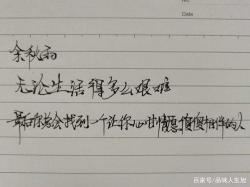 No
Date
余秋雨
无论生活得多么艰难
最后你总会找到一个让你心甘情愿傻傻相伴的人
百家号/品味人生旭